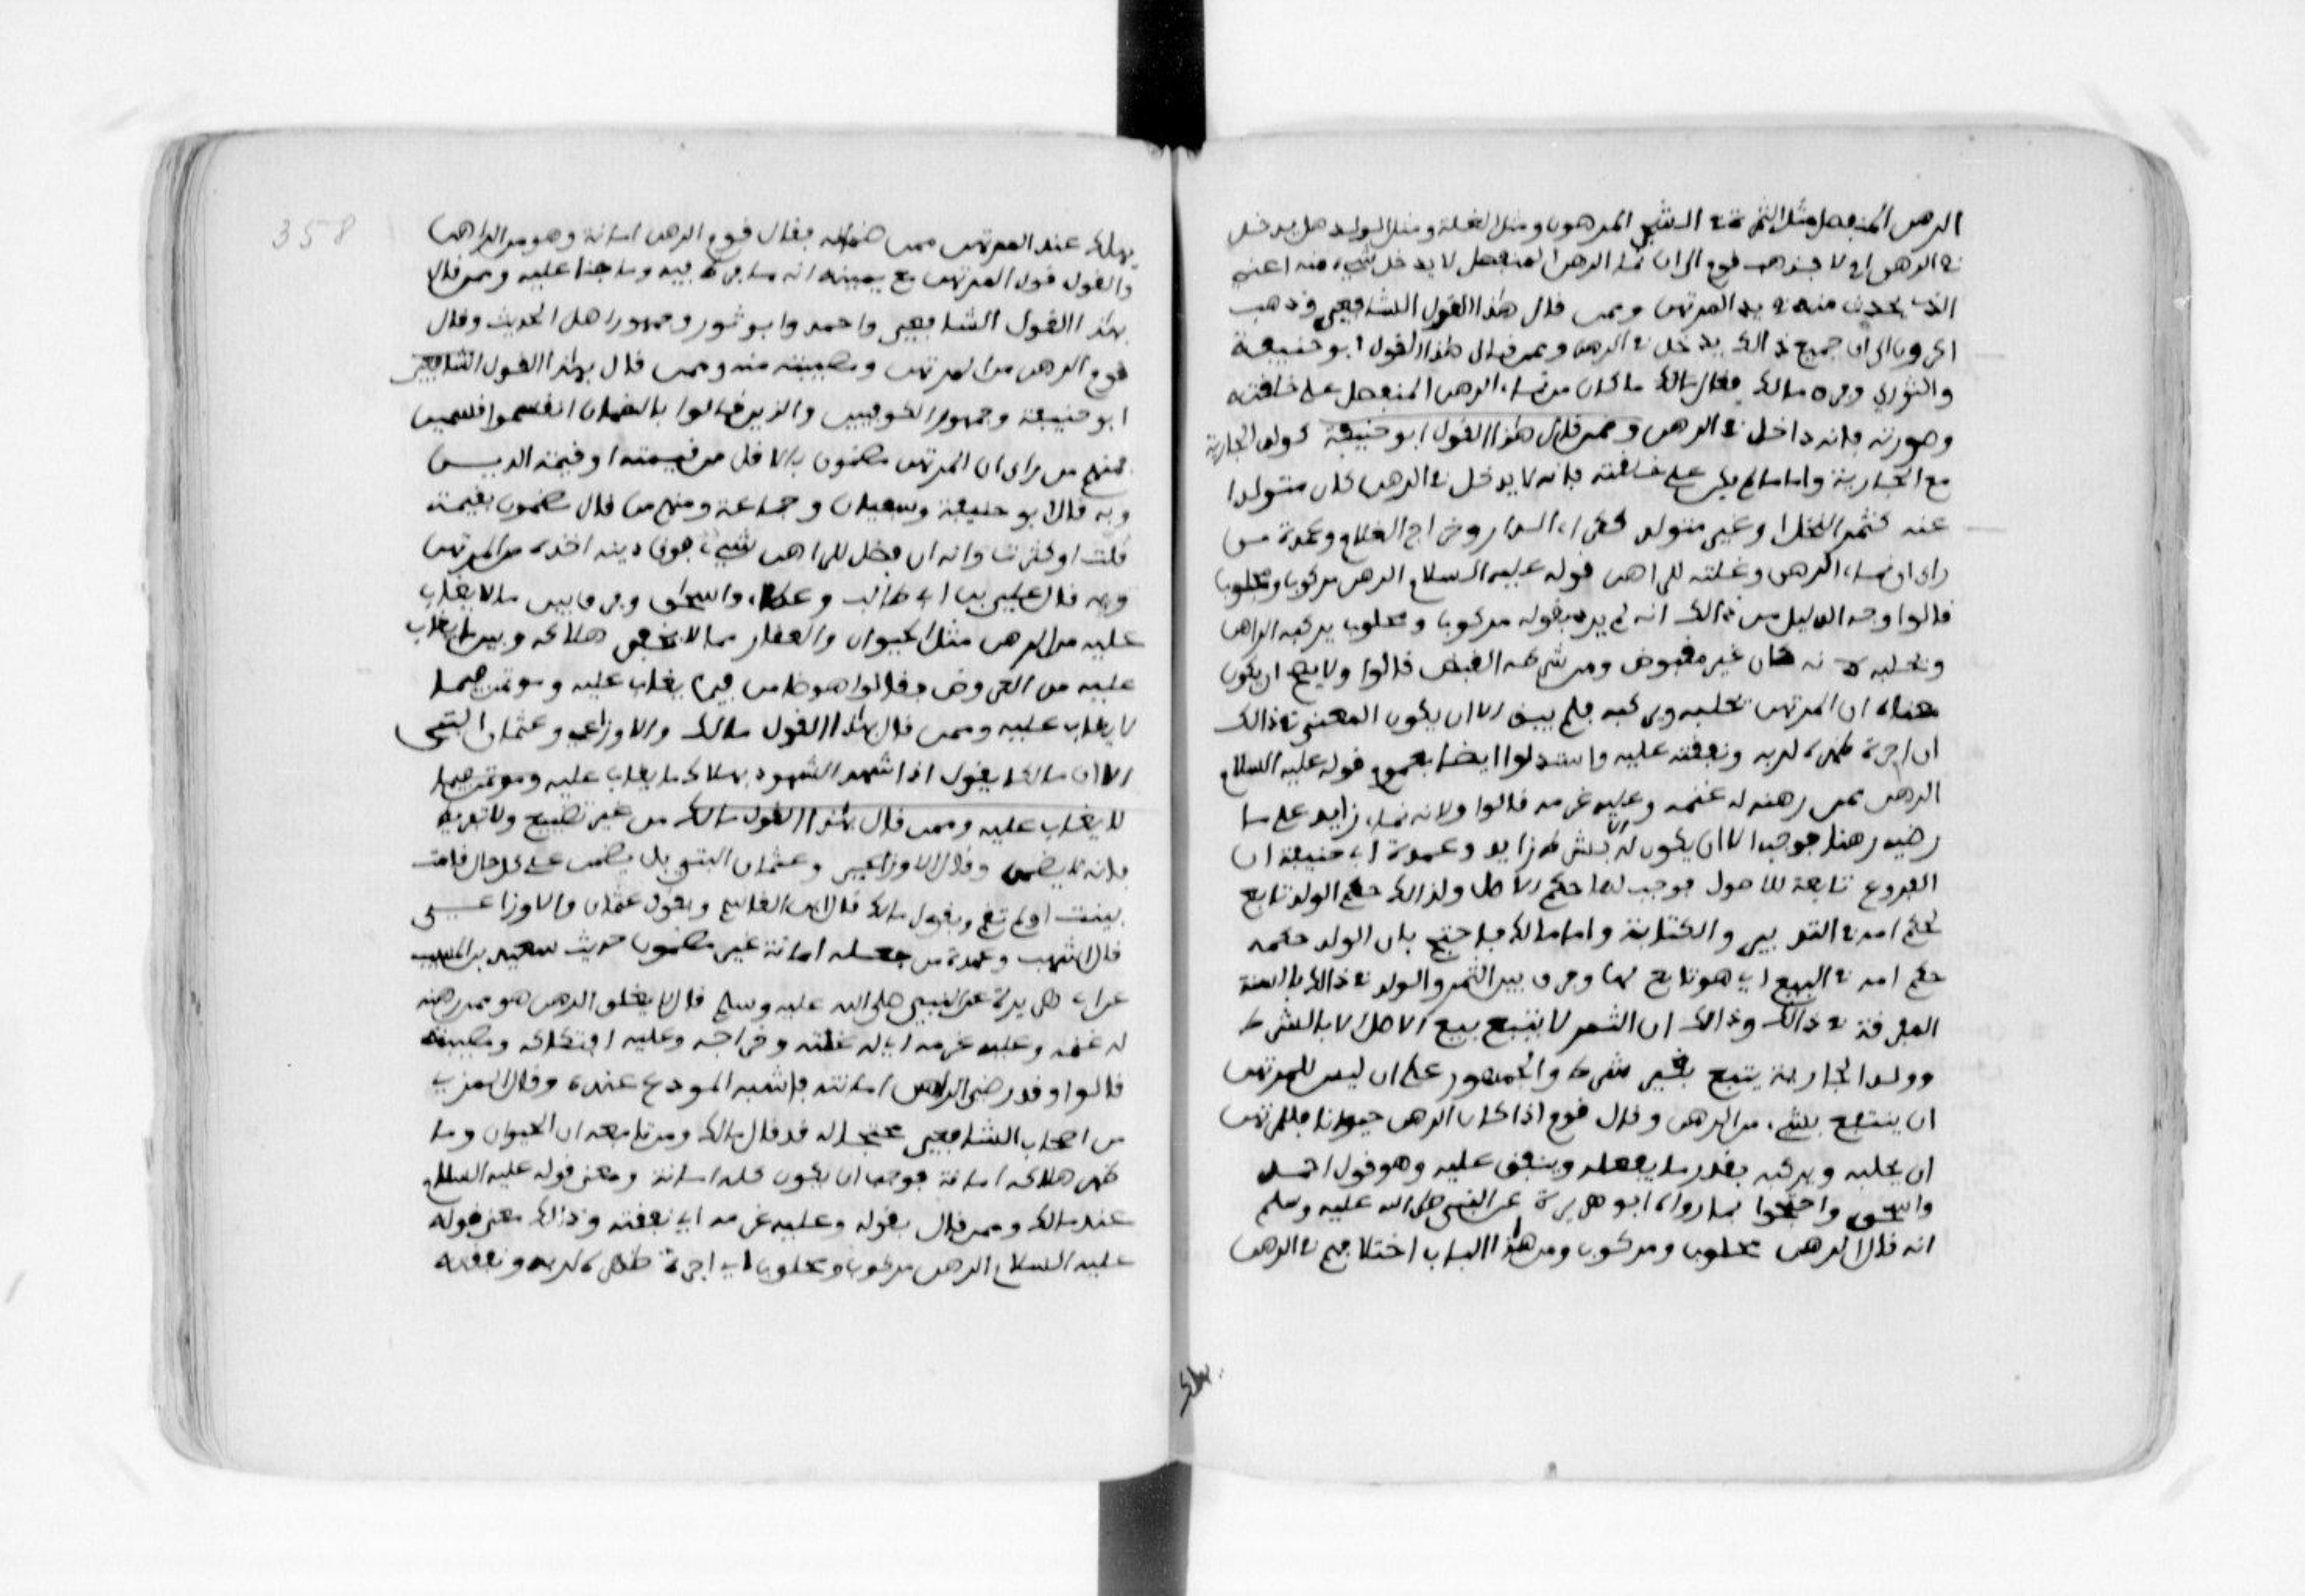 الرهن المنفصل مثل الثمرة في الشجر المرهون ومثل الغلة ومثل الولد هل يدخل
في الرهن او لا فذهب قوم الى ان نماء الرهن المنفصل لا يدخل شيء منه اعني
الذي يحدث منه في يد المرتهن وممن قال هذا القول الشافعي وذهب
اخرون الى ان جميع ذالك يدخل في الرهن وممن قال هذا القول ابو حنيفة
والثوري وفرق مالك فقال مالك ما كان من نماء الرهن المنفصل على خلقته
وصورته فانه داخل في الرهن وممن قال هذا القول ابو حنيفة كولد الجارية
مع الجارية واما ما لم يكن على خلقته فانه لا يدخل في الرهن كان متولدا
عنه كثمر النخل او غير متولد ككراء الدار وخراج الغلام وعمدة من
راى ان نماء الرهن وغلته للراهن قوله عليه السلام الرهن مركوب ومحلوب
قالوا وجه الدليل من ذالك انه لم يرد بقوله مركوب ومحلوب يركبه الراهن
ويحلبه لانه كان غير مقبوض ومن شرطه القبض قالوا ولا يصح ان يكون
معناه ان المرتهن يحلبه ويركبه فلم يبق الا ان يكون المعنى في ذالك
ان اجرة ظهره لربه ونفقته عليه واستدلوا ايضا بعموم قوله عليه السلام
الرهن ممن رهنه له غنمه وعليه غرمه قالوا ولانه نماء زايد على ما
رضيه رهنا فوجب الا ان يكون له الا بشرط زايد وعمدة ابي حنيفة ان
الفروع تابعة للاصول فوجب لها حكم الاصل ولذالك حكم الولد تابع
لحكم امه في التدبير والكتابة واما مالك فاحتج بان الولد حكمه
حكم امه في البيع اي هو تابع لها وفرق بين الثمر والولد في ذالك بالسنة
المفرقة في ذالك وذالك ان الثمر لا يتبع بيع الاصل الا بالشرط
وولد الجارية يتبع بغير شرط والجمهور على ان ليس للمرتهن
ان ينتفع بشيء من الرهن وقال قوم اذا كان الرهن حيوانا فللمرتهن
ان يحلبه ويركبه بقدر ما يعلفه وينفق عليه وهو قول احمد
واسحق واحتجوا بما رواه ابو هريرة عن النبي صلى الله عليه وسلم
انه قال الرهن محلوب ومركوب ومن هذا الباب اختلافهم في الرهن
358
يهلك عند المرتهن ممن ضمانه فقال قوم الرهن امانة وهو من الراهن
والقول قول المرتهن مع يمينه انه ما فرط فيه وما جنا عليه وممن قال
بهذا القول الشافعي واحمد وابو ثور وجمهور اهل الحديث وقال
قوم الرهن من المرتهن ومصيبته منه وممن قال بهذا القول الشافعي
ابو حنيفة وجمهور الكوفيين والذين قالوا بالضمان انقسموا قسمين
فمنهم من راى ان المرتهن مضمون بالاقل من قيمته او قيمة الدين
وبه قال ابو حنيفة وسفيان وجماعة ومنهم من قال مضمون بقيمته
قلت او كثرت وانه ان فضل للراهن شيء فوق دينه اخذه من المرتهن
وبه قال علي بن ابي طالب وعطاء واسحق وفرق بين ما لا يغاب
عليه من الرهن مثل الحيوان والعقار مما لا يخفى هلاكه وبين ما يغاب
عليه من العروض فقالوا هو ضامن فيما يغاب عليه وموتمن فيما
لا يغاب عليه وممن قال بهذا القول مالك والاوزاعي وعثمان البتي
الا ان مالكا يقول اذا شهد الشهود بهلاك ما يغاب عليه وموتمن فيما
لا يغاب عليه وممن قال بهذا القول مالك من غير تضييع ولا تفريط
فانه لا يضمن وقال الاوزاعي وعثمان البتي بل يضمن على كل حال قامت
بينة او لم تقم وبقول مالك قال ابن القاسم وبقول عثمان والاوزاعي
قال اشهب وعمدة من جعله امانة غير مضمون حديث سعيد بن المسيب
عن ابي هريرة عن النبيي صلى الله عليه وسلم قال لا يغلق الرهن هو ممن رهنه
له غنمه وعليه غرمه اي له غلته وخراجه وعليه افتكاكه ومصيبته
قالوا وقد رضي الراهن امانته فاشبه المودع عنده وقال المزني
من اصحاب الشافعي محتجا له قد قال مالك ومن تابعه ان الحيوان وما
ظهر هلاكه امانة فوجب ان يكون كله امانة ومعنى قوله عليه السلام
عند مالك وممن قال بقوله وعليه غرمه اي نفقته وذالك معنى قوله
عليه السلام الرهن مركوب ومحلوب اي اجرة ظهره لربه ونفقته